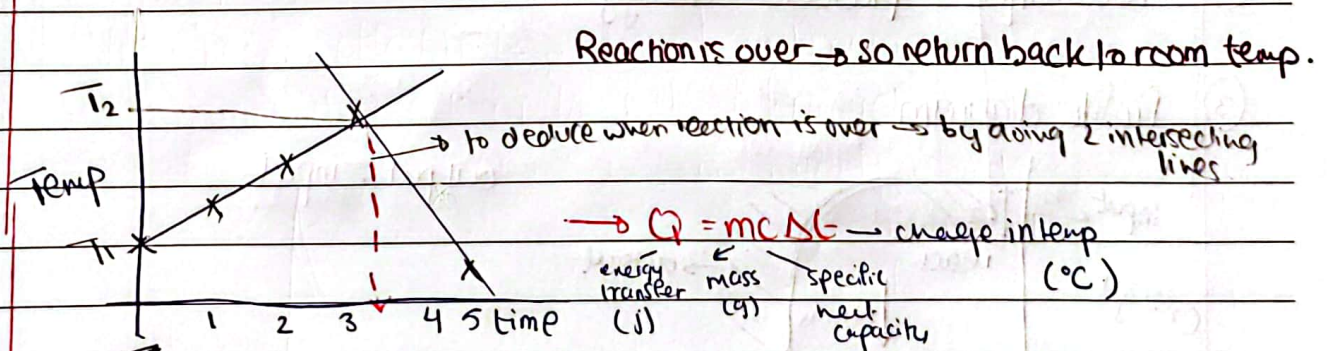 Reaction is over → so return back to room temp.
T2
→ to deduce when reaction is over → by doing 2 intersecting
lines
Temp
→ Q = mcΔt → change in temp
(°C)
T1
energy
transfer
(j)
mass
(g)
specific
heat
capacity
1 2 3 4 5 time